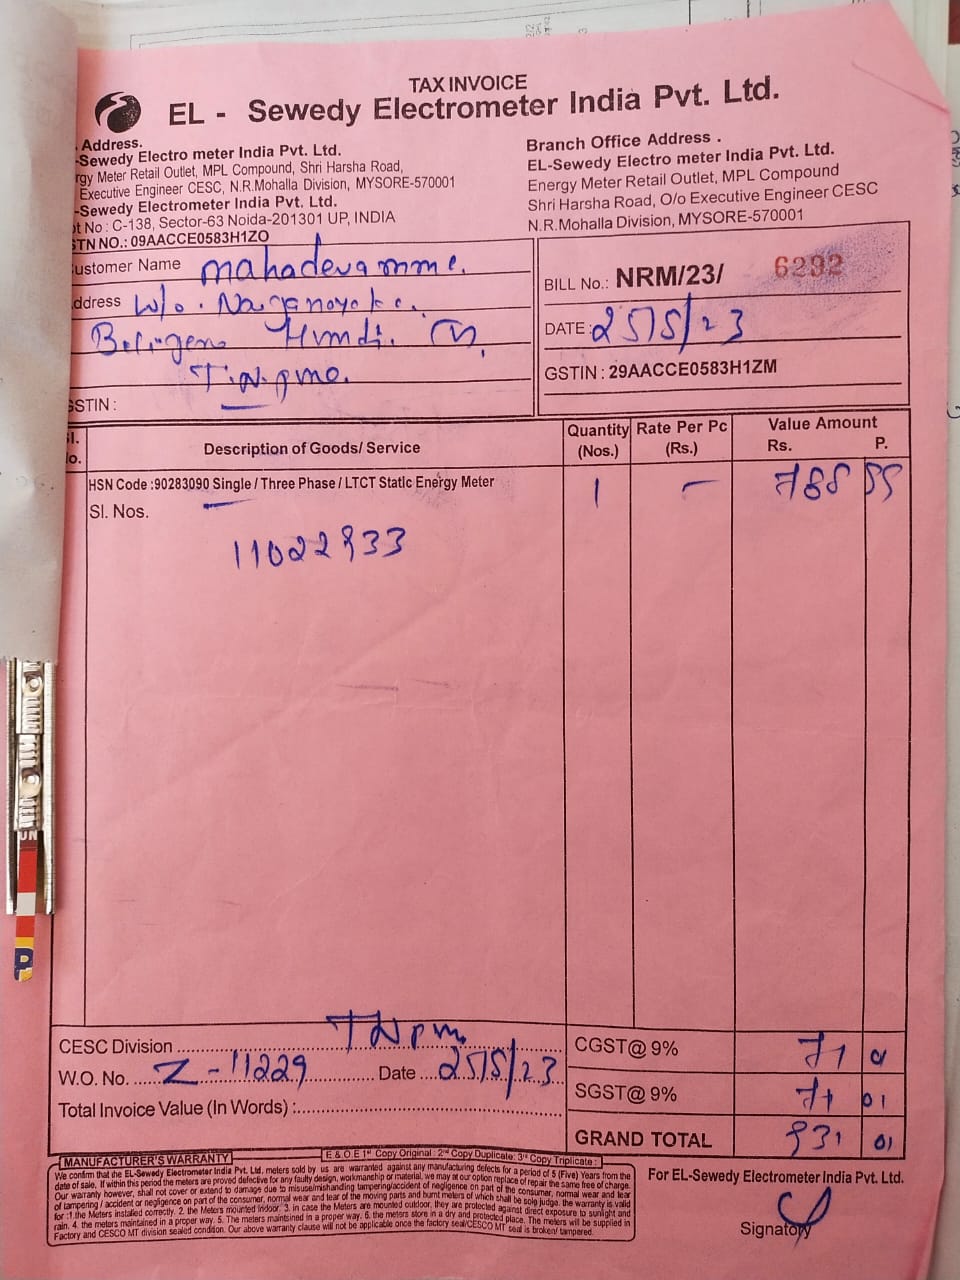 TAX INVOICE
EL - Sewedy Electrometer India Pvt. Ltd.
Address.
-Sewedy Electro meter India Pvt. Ltd.
rgy Meter Retail Outlet, MPL Compound, Shri Harsha Road,
Executive Engineer CESC, N.R.Mohalla Division, MYSORE-570001
-Sewedy Electrometer India Pvt. Ltd.
ot No : C-138, Sector-63 Noida-201301 UP, INDIA
STN NO.: 09AACCE0583H1ZO
Branch Office Address .
EL-Sewedy Electro meter India Pvt. Ltd.
Energy Meter Retail Outlet, MPL Compound
Shri Harsha Road, O/o Executive Engineer CESC
N.R.Mohalla Division, MYSORE-570001
ustomer Name mahadevamma.
ddress w/o.
T.N.pura.
GSTIN :
BILL No.: NRM/23/ 6292
DATE : 25/5/23
GSTIN : 29AACCE0583H1ZM
Sl. No. Description of Goods/ Service Quantity (Nos.) Rate Per Pc (Rs.) Value Amount Rs. P.
HSN Code :90283090 Single / Three Phase / LTCT Static Energy Meter 1 -
Sl. Nos.
11022933
CESC Division TNpura
W.O. No. Z-11229 Date 25/5/23
Total Invoice Value (In Words) :
CGST@ 9% 71 01
SGST@ 9% 71 01
GRAND TOTAL 931 01
E & O.E 1st Copy Original : 2nd Copy Duplicate: 3rd Copy Triplicate :
MANUFACTURER'S WARRANTY
We confirm that the EL-Sewedy Electrometer India Pvt. Ltd, meters sold by us are warranted against any manufacturing defects for a period of 5 (Five) Years from the
date of sale. If within this period the meters are proved defective for any faulty design, workmanship or material, we may at our option replace of repair the same free of charge.
Our warranty however, shall not cover or extend to damage due to misuse/mishanding tampering/accident of negligence on part of the consumer, normal wear and tear
of tampering / accident or negligence on part of the consumer, normal wear and tear of the moving parts and burnt meters of which shall be sole judge. the warranty is valid
for :1.the Meters installed correctly. 2. the Meters mounted indoor. 3. in case the Meters are mounted outdoor, they are protected against direct exposure to sunlight and
rain. 4. the meters maintained in a proper way. 5. The meters maintained in a proper way. 6. the meters store in a dry and protected place. The meters will be supplied in
Factory and CESCO MT division sealed condition. Our above warranty clause will not be applicable once the factory seal/CESCO MT seal is broken/ tampered.
For EL-Sewedy Electrometer India Pvt. Ltd.
Signatory